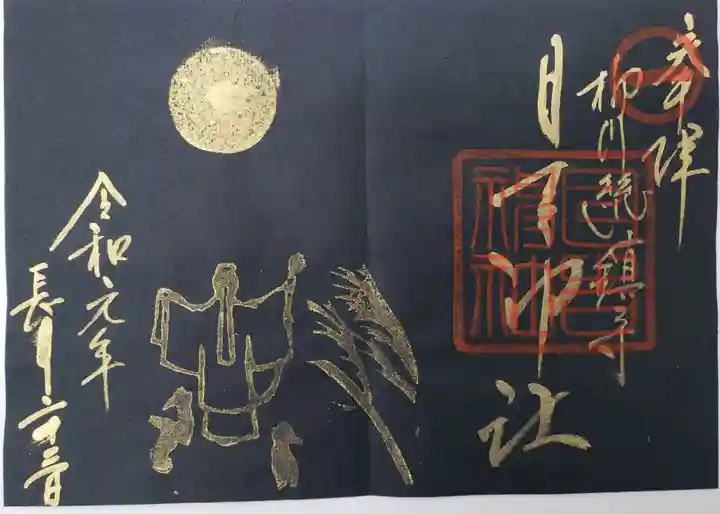 奉拝
柳川総鎮守
日吉神社
日吉
神社
令和元年
長月